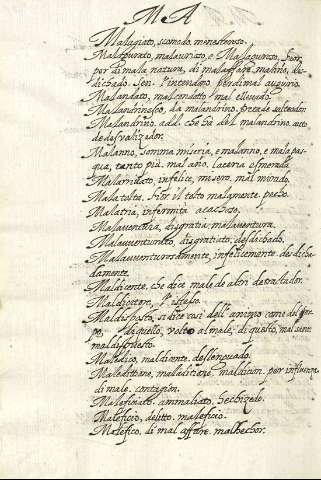 MA
Malagiato, scomodo, menesteroso.
Malagurato, malauriato, e Malaguroso,
per di mala natura, di malaffare, malino, des-
dichado. Sen. l'intendano per di mal augurio.
Malandato, malcondotto mal
Malandrinesco, da malandrino,
Malandrino, add. che ha del malandrino
de desvalizador.
Malanno, somma miseria, e malanno, e mala pas-
qua, tanto più, mal año, laceria esmerada
Malarrivato, infelice, misero. mal
Malatolta. Fior. il tolto malamente.
Malatria, infermità
Malaventura, disgratia malaventura.
Malavventurato, disgratiato, desdichado.
Malavventuratamente, infelicemente. desdicha-
damente.
Maldicente, che dice male de altri detractador.
Maldicitore, l'istesso.
Maldisposto, si dice così dell'animo come del
po, daquello, volto al male, di questo, mal sano
mal dispuesto.
Maledico, maldicente. deslenguado.
Maledittione, maladitione, maldicion. per influenza
di male. contagion.
Maleficiato. ammaliato. hechizado.
Maleficio, delitto. maleficio.
Malefico, di mal affare. malhechor.